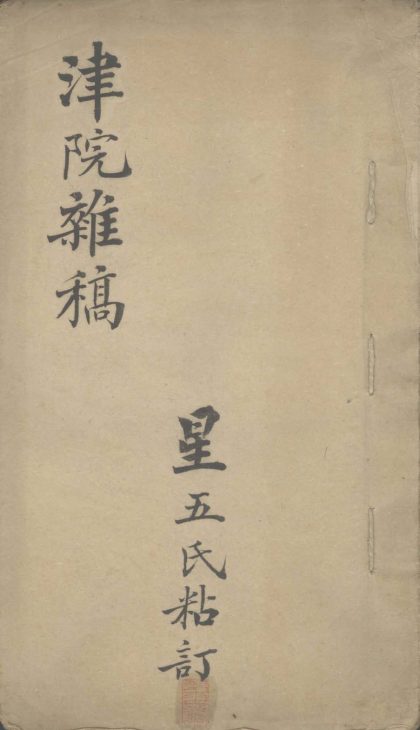 津院雜稿
星五氏粘訂